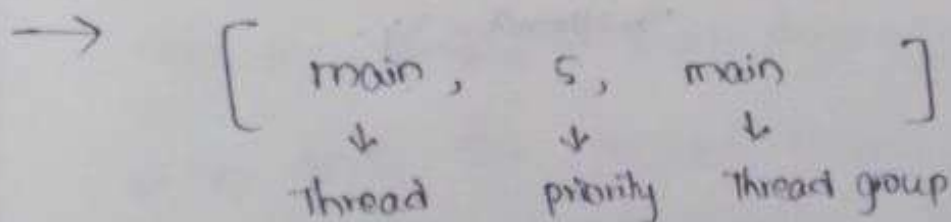 → [ main, 5, main ]
↓ ↓ ↓
Thread priority Thread group